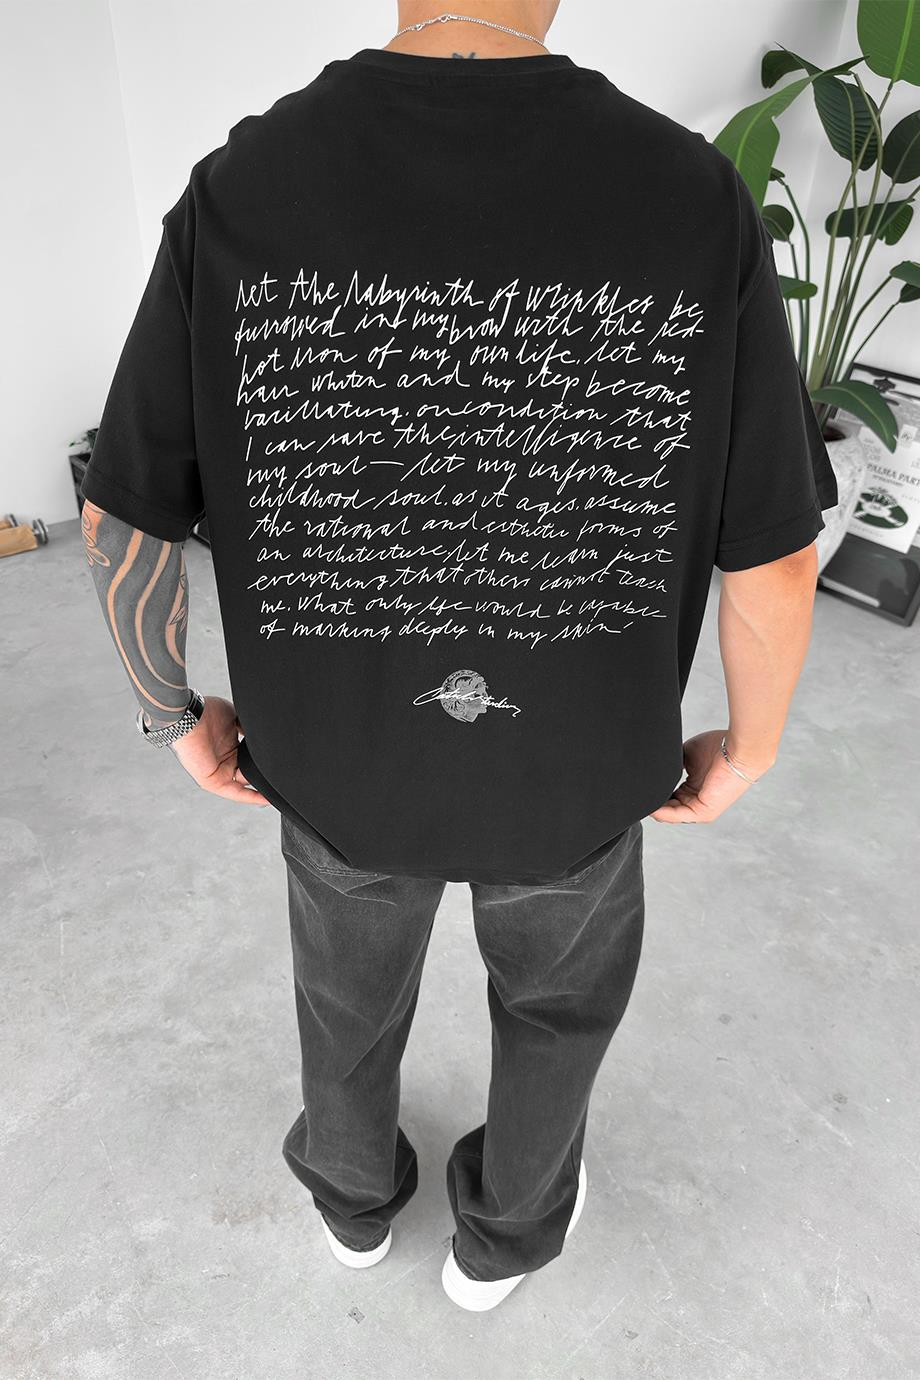 let the labyrinth of wrinkles be
furrowed in my brow with the red-
hot iron of my own life, let my
hair whiten and my step become
vacillating, on condition that
I can save the intelligence of
my soul — let my unformed
childhood soul, as it ages, assume
the rational and esthetic forms of
an architecture, let me learn just
everything that others cannot teach
me, what only life would be capable
of marking deeply in my skin!
PALMA PART